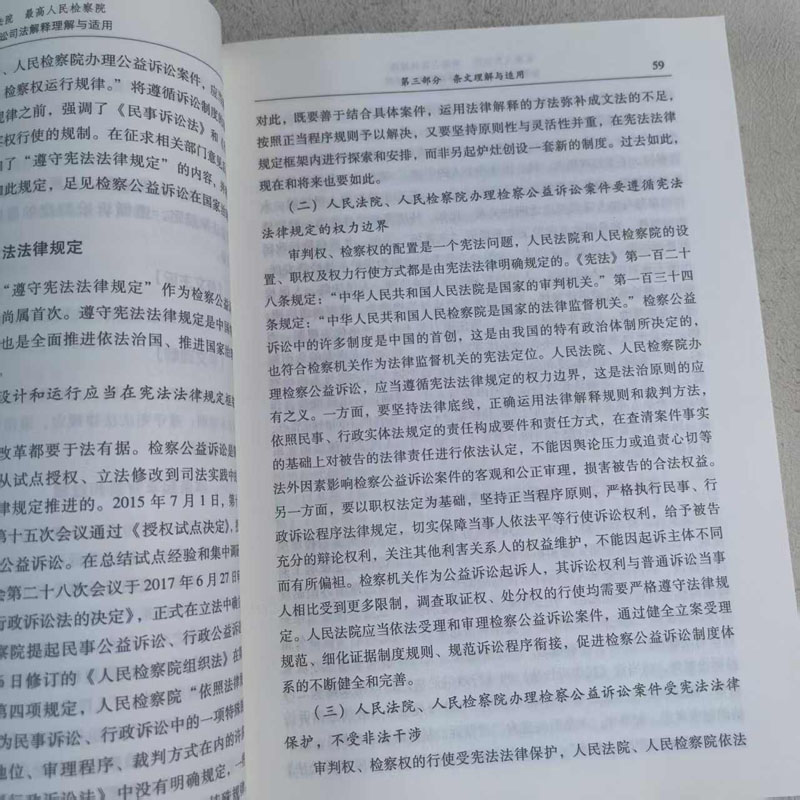 最高人民检察院
讼司法解释理解与适用
、人民检察院办理公益诉讼案件,
检察权运行规律。”将遵循诉讼制度
律之前,强调了《民事诉讼法》和《
权行使的规制。在征求相关部门意见
了“遵守宪法法律规定”的内容,
此规定,足见检察公益诉讼在国家
法法律规定
“遵守宪法法律规定”作为检察公益
尚属首次。遵守宪法法律规定是中国
也是全面推进依法治国、推进国家
设计和运行应当在宪法法律规定框
改革都要于法有据。检察公益诉讼
从试点授权、立法修改到司法实践中
律规定推进的。2015年7月1日,
第十五次会议通过《授权试点决定》,
公益诉讼。在总结试点经验和集中
会第二十八次会议于2017年6月27日
行政诉讼法的决定》,正式在立法中
察院提起民事公益诉讼、行政公益
日修订的《人民检察院组织法》在
第四项规定,人民检察院“依照法律
为民事诉讼、行政诉讼中的一项特殊
地位、审理程序、裁判方式在内的
行政诉讼法》中没有明确规定,一
59
第三部分 条文理解与适用
对此,既要善于结合具体案件,运用法律解释的方法弥补成文法的不足,
按照正当程序规则予以解决,又要坚持原则性与灵活性并重,在宪法法律
规定框架内进行探索和安排,而非另起炉灶创设一套新的制度。过去如此,
现在和将来也要如此。
(二)人民法院、人民检察院办理检察公益诉讼案件要遵循宪法
法律规定的权力边界
审判权、检察权的配置是一个宪法问题,人民法院和人民检察院的设
置、职权及权力行使方式都是由宪法法律明确规定的。《宪法》第一百二十
八条规定:“中华人民共和国人民法院是国家的审判机关。”第一百三十四
条规定:“中华人民共和国人民检察院是国家的法律监督机关。”检察公益
诉讼中的许多制度是中国的首创,这是由我国的特有政治体制所决定的,
也符合检察机关作为法律监督机关的宪法定位。人民法院、人民检察院办
理检察公益诉讼,应当遵循宪法法律规定的权力边界,这是法治原则的应
有之义。一方面,要坚持法律底线,正确运用法律解释规则和裁判方法,
依照民事、行政实体法规定的责任构成要件和责任方式,在查清案件事实
的基础上对被告的法律责任进行依法认定,不能因舆论压力或追责心切等
法外因素影响检察公益诉讼案件的客观和公正审理,损害被告的合法权益。
另一方面,要以职权法定为基础,坚持正当程序原则,严格执行民事、行
政诉讼程序法律规定,切实保障当事人依法平等行使诉讼权利,给予被告
充分的辩论权利,关注其他利害关系人的权益维护,不能因起诉主体不同
而有所偏袒。检察机关作为公益诉讼起诉人,其诉讼权利与普通诉讼当事
人相比受到更多限制,调查取证权、处分权的行使均需要严格遵守法律规
定。人民法院应当依法受理和审理检察公益诉讼案件,通过健全立案受理
规范、细化证据制度规则、规范诉讼程序衔接,促进检察公益诉讼制度体
系的不断健全和完善。
(三)人民法院、人民检察院办理检察公益诉讼案件受宪法法律
保护,不受非法干涉
审判权、检察权的行使受宪法法律保护,人民法院、人民检察院依法